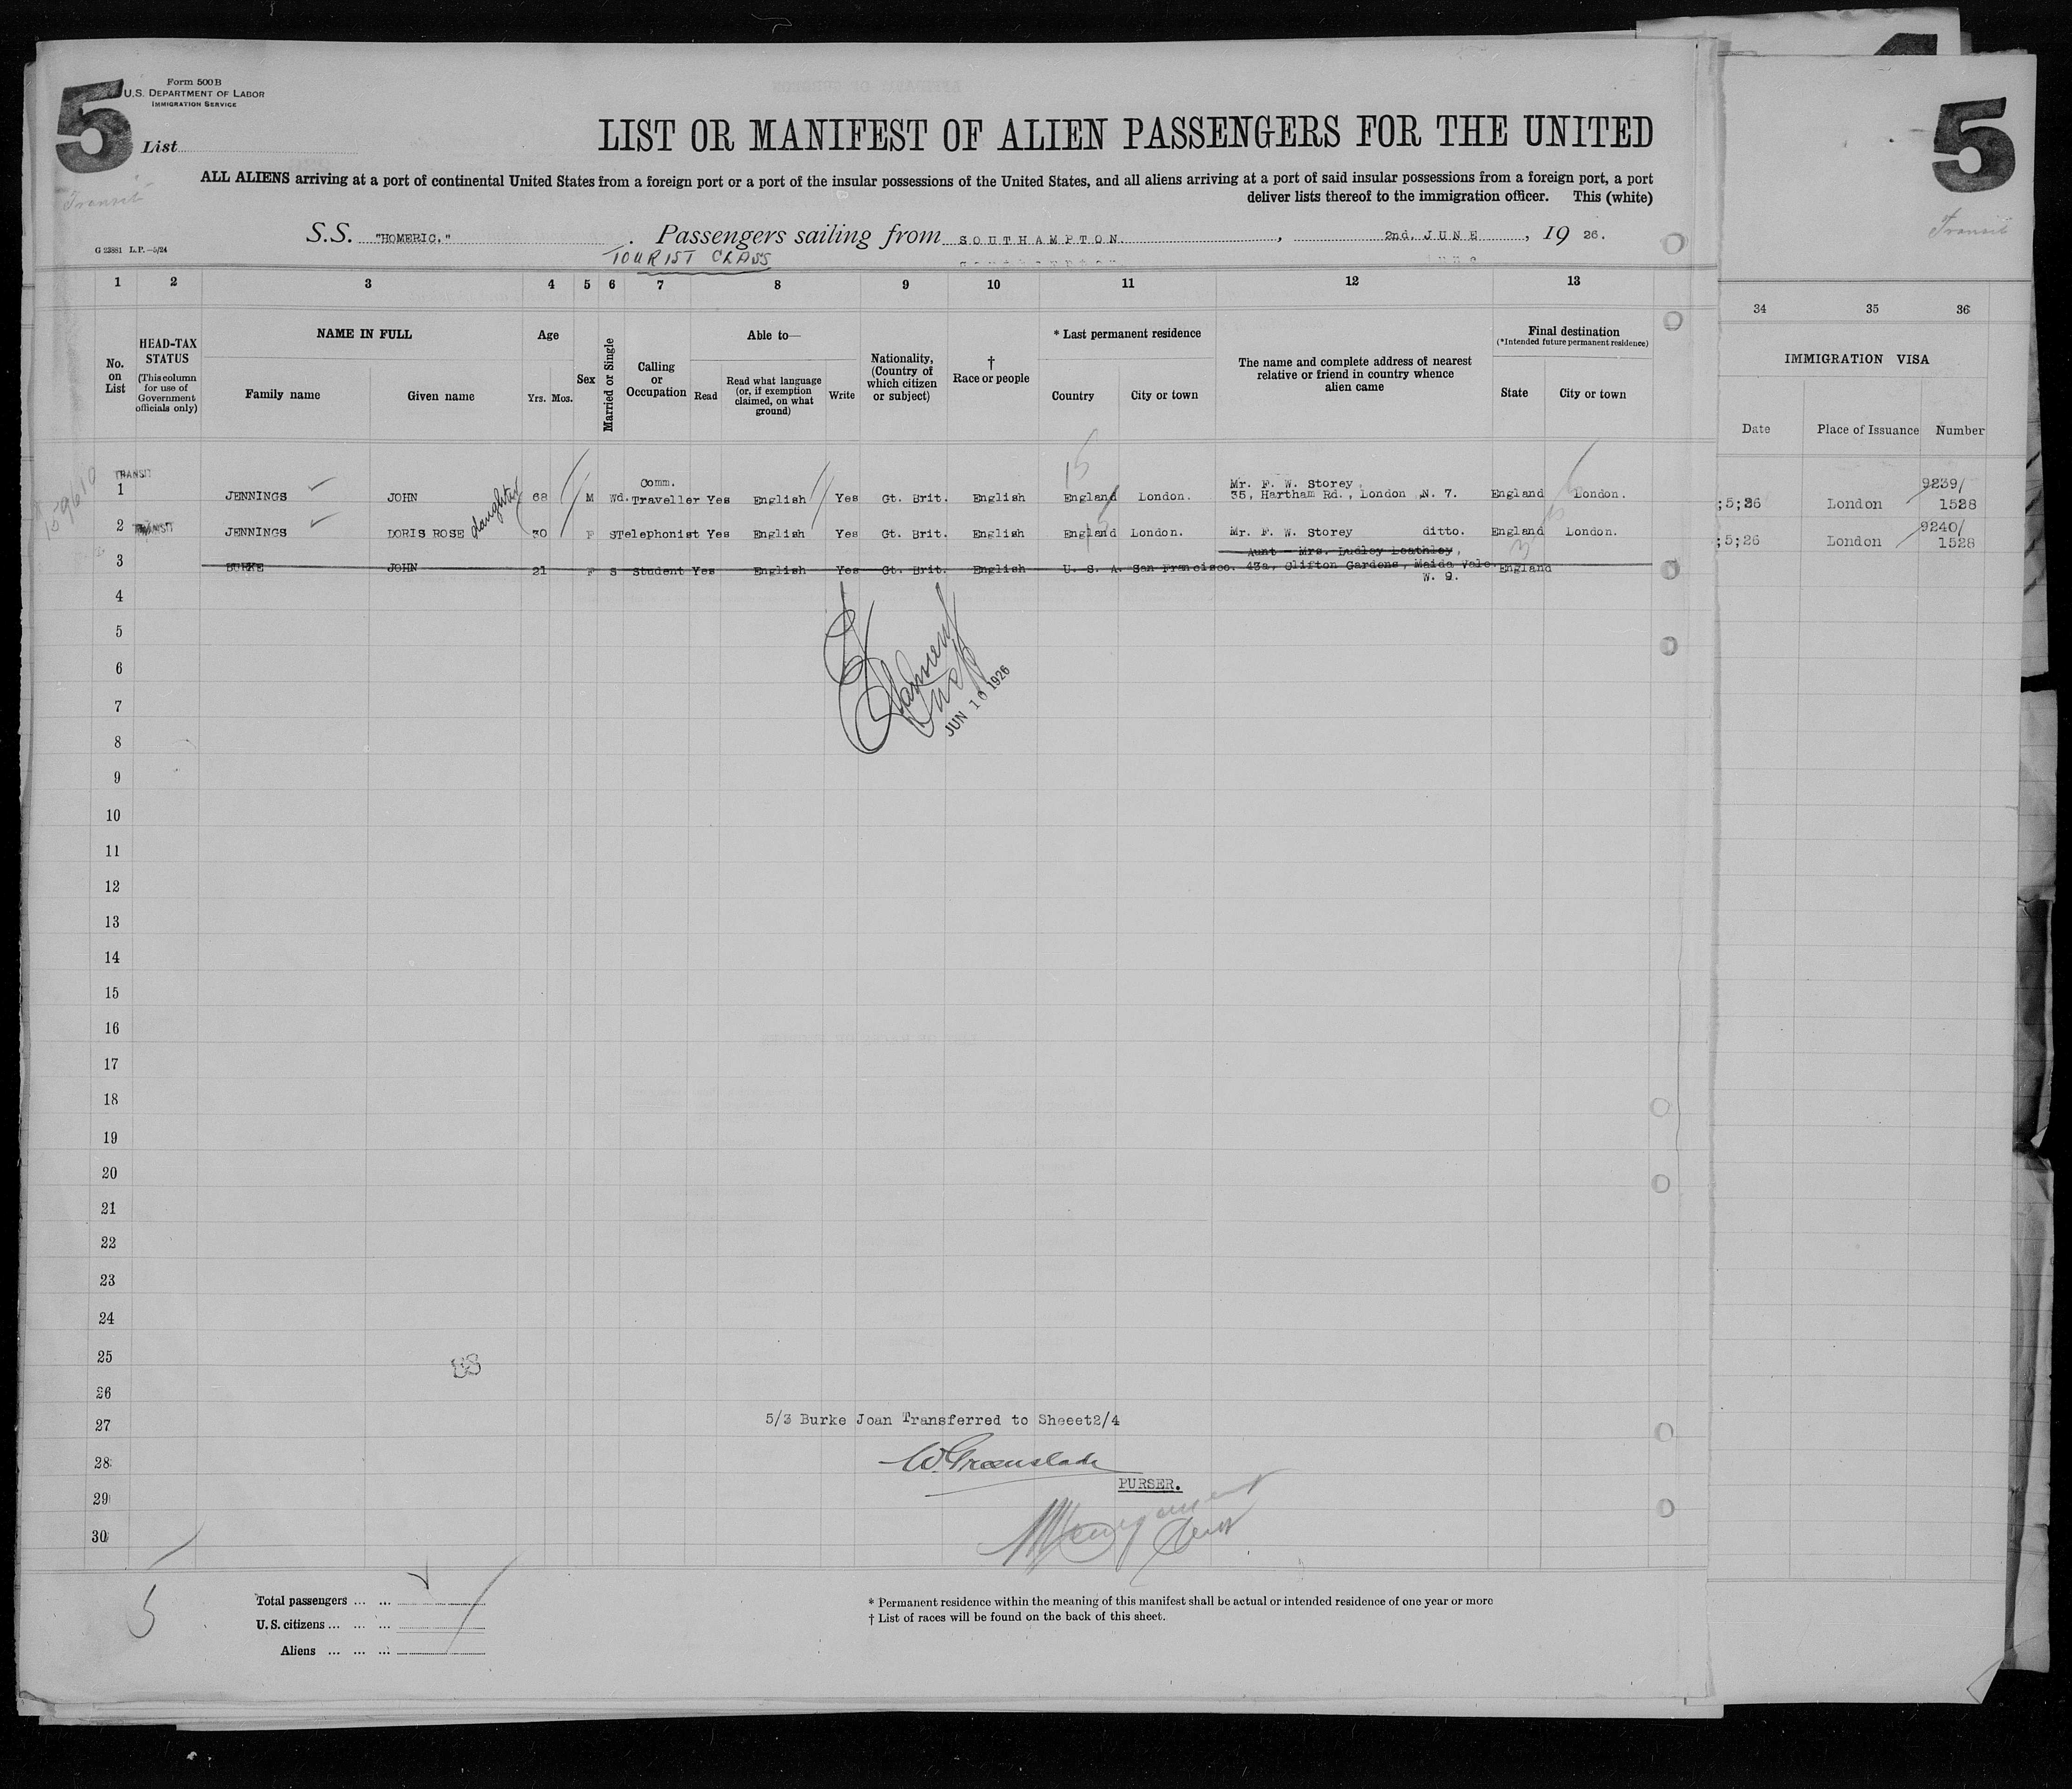 5
Form 500 B
U.S. DEPARTMENT OF LABOR
IMMIGRATION SERVICE
List
Transit
LIST OR MANIFEST OF ALIEN PASSENGERS FOR THE UNITED
ALL ALIENS arriving at a port of continental United States from a foreign port or a port of the insular possessions of the United States, and all aliens arriving at a port of said insular possessions from a foreign port, a port
deliver lists thereof to the immigration officer. This (white)
S.S. "HOMERIC." . Passengers sailing from SOUTHAMPTON , 2nd. JUNE , 19 26.
TOURIST CLASS
G 23881 L.P.—5/24
5
Transit
1 2 3 4 5 6 7 8 9 10 11 12 13
34 35 36
No. on List
HEAD-TAX STATUS
(This column for use of Government officials only)
NAME IN FULL
Family name Given name
Age
Yrs. Mos.
Sex
Married or Single
Calling or Occupation
Able to—
Read
Read what language (or, if exemption claimed, on what ground)
Write
Nationality, (Country of which citizen or subject)
† Race or people
* Last permanent residence
Country City or town
The name and complete address of nearest relative or friend in country whence alien came
Final destination
(*Intended future permanent residence)
State City or town
IMMIGRATION VISA
Date Place of Issuance Number
TRANSIT
1 JENNINGS JOHN 68 M Wd. Comm. Traveller Yes English Yes Gt. Brit. English England London. Mr. F. W. Storey, 35, Hartham Rd., London N. 7. England London. ;5;26 London 9239/ 1528
2 TRANSIT JENNINGS DORIS ROSE daughter 30 F S Telephonist Yes English Yes Gt. Brit. English England London. Mr. F. W. Storey ditto. England London. ;5;26 London 9240/ 1528
3 BURKE JOHN 21 F S Student Yes English Yes Gt. Brit. English U. S. A. San Francisco. Aunt - Mrs. Ludley Loathley, 43a, Clifton Gardens, Maida Vale. W. 9. England
4
5
6
JUN 10 1926
7
8
9
10
11
12
13
14
15
16
17
18
19
20
21
22
23
24
25
26
27 5/3 Burke Joan Transferred to Sheeet2/4
28 W. Greenslade
PURSER.
29
30
5
Total passengers ... ...
U.S. citizens ... ... ...
Aliens ... ... ...
* Permanent residence within the meaning of this manifest shall be actual or intended residence of one year or more
† List of races will be found on the back of this sheet.